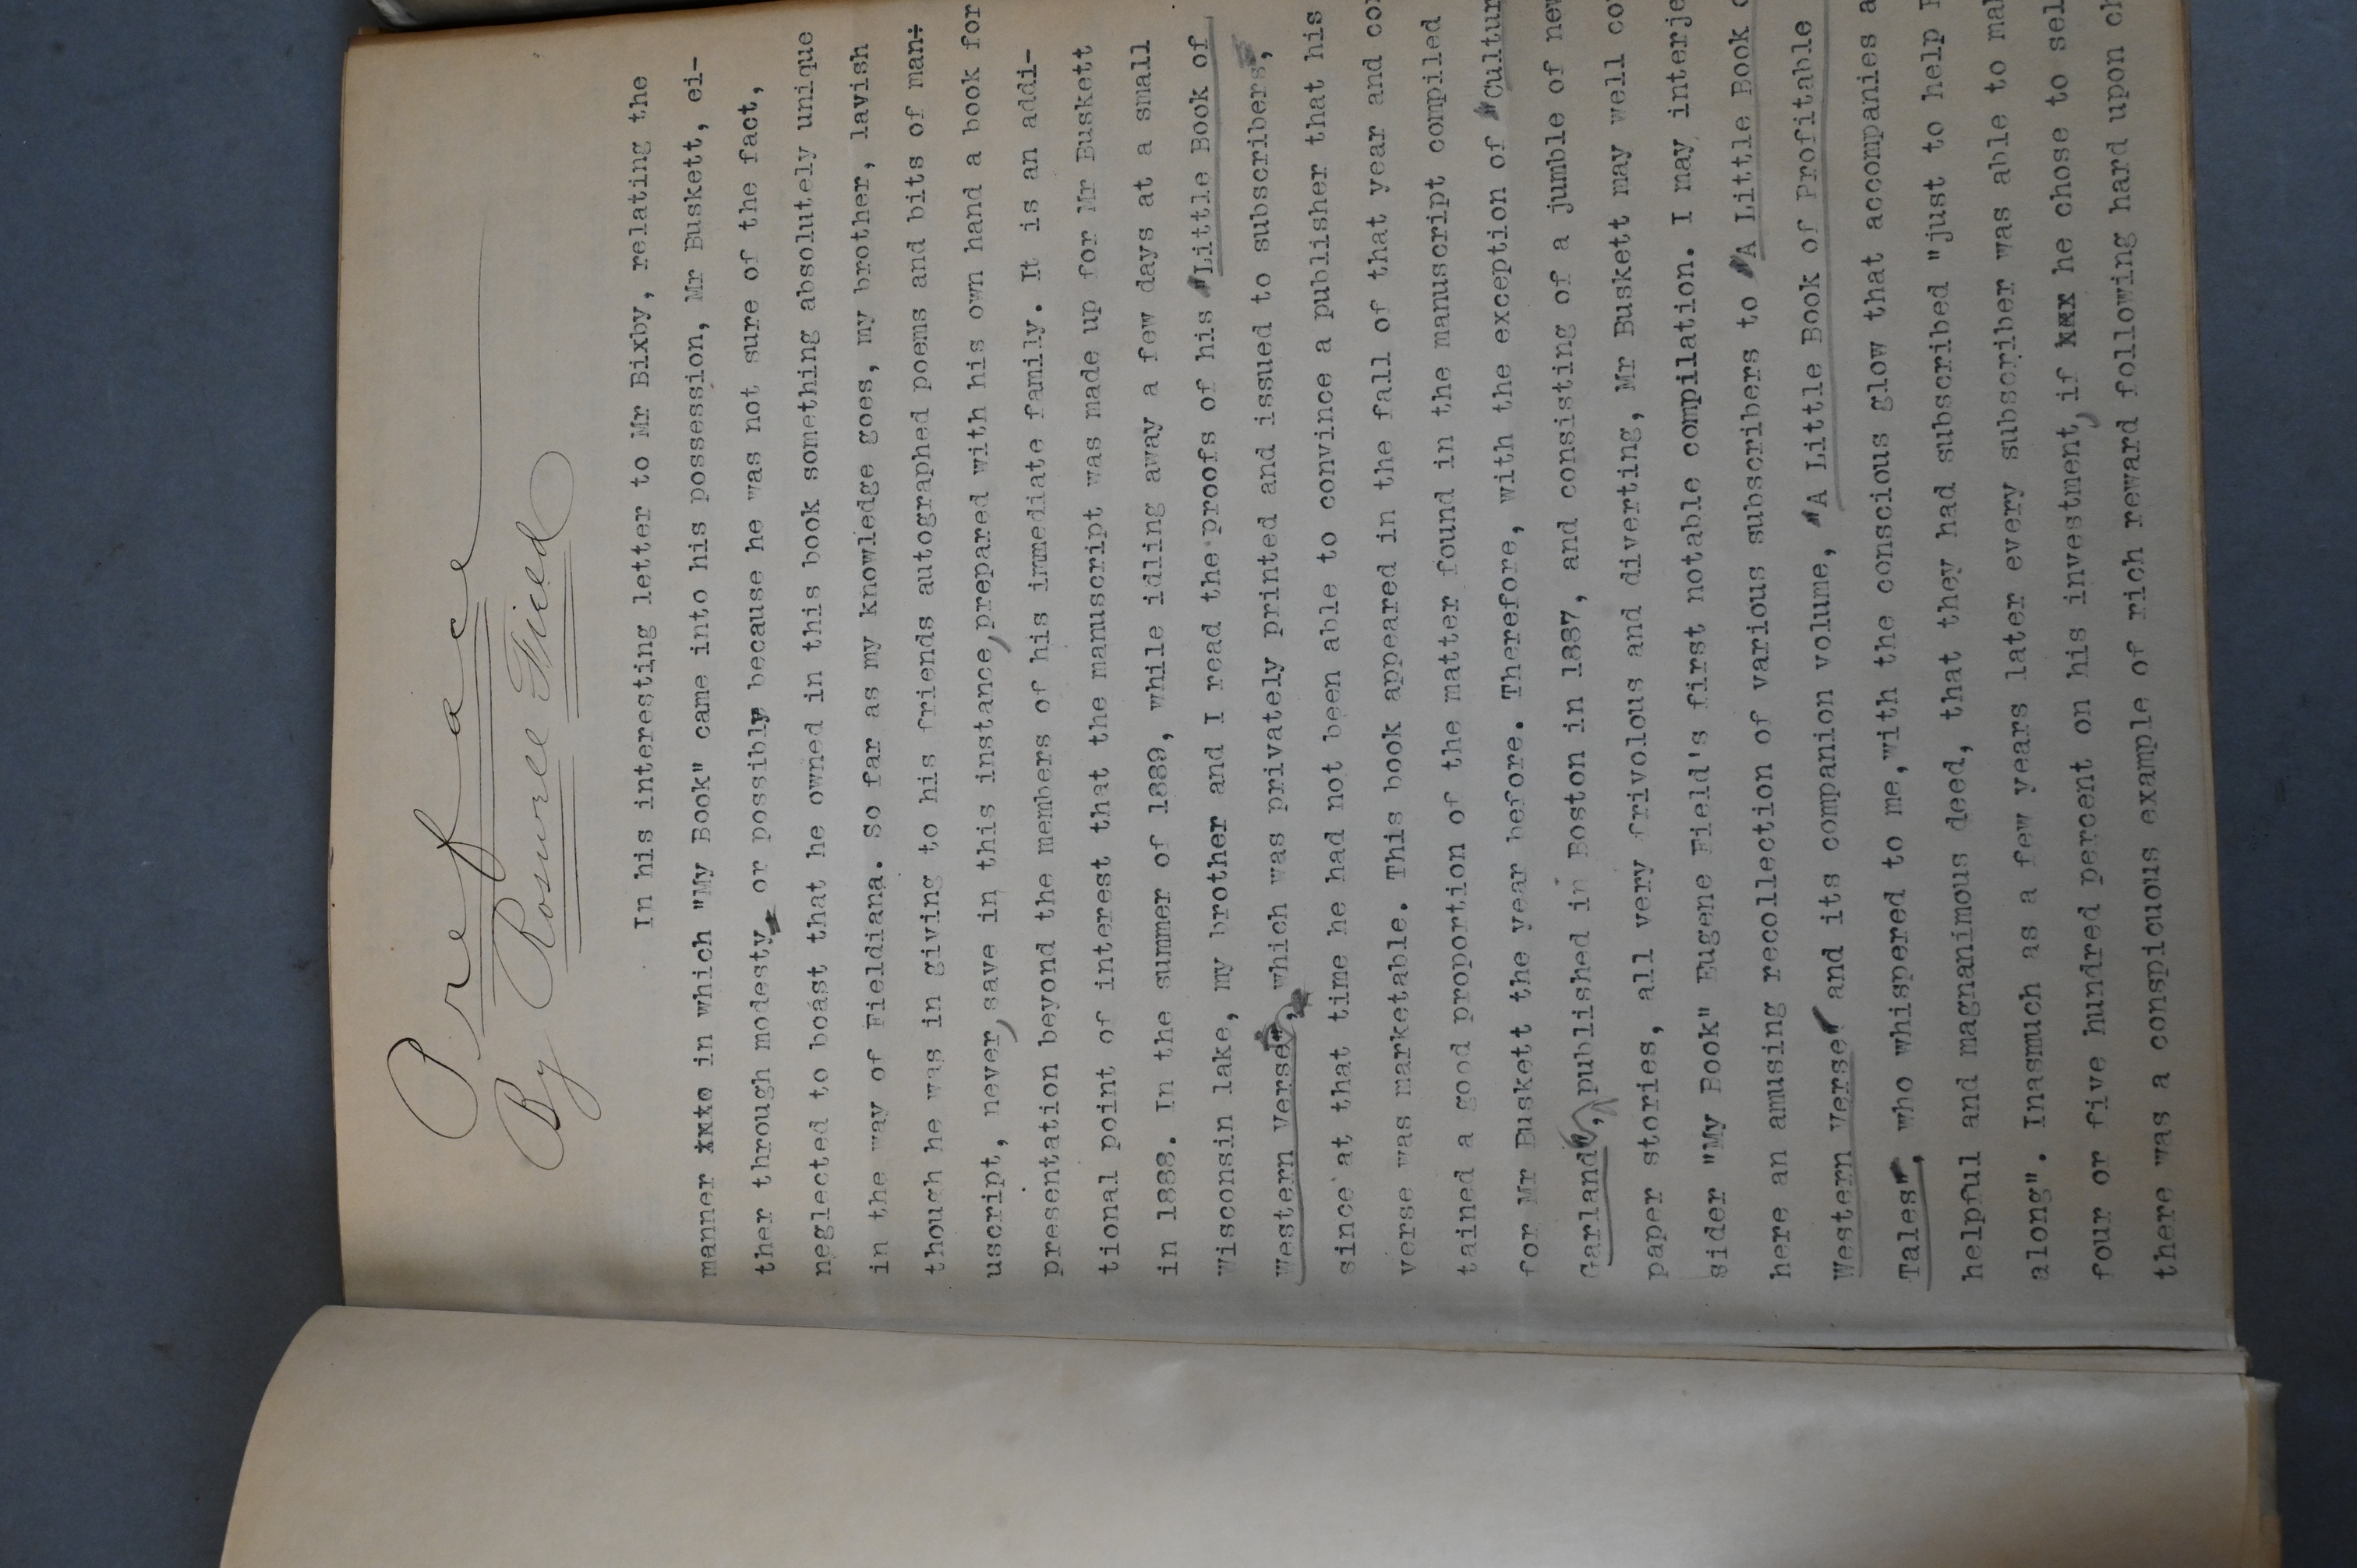 Preface
By Roswell Field
In his interesting letter to Mr Bixby, relating the
manner in which "My Book" came into his possession, Mr Buskett, ei-
ther through modesty or possibly because he was not sure of the fact,
neglected to boast that he owned in this book something absolutely unique
in the way of Fieldiana. So far as my knowledge goes, my brother, lavish
though he was in giving to his friends autographed poems and bits of man-
uscript, never, save in this instance, prepared with his own hand a book for
presentation beyond the members of his immediate family. It is an addi-
tional point of interest that the manuscript was made up for Mr Buskett
in 1888. In the summer of 1889, while idling away a few days at a small
Wisconsin lake, my brother and I read the proofs of his "Little Book of
Western Verse", which was privately printed and issued to subscribers,
since at that time he had not been able to convince a publisher that his
verse was marketable. This book appeared in the fall of that year and con
tained a good proportion of the matter found in the manuscript compiled
for Mr Buskett the year before. Therefore, with the exception of "Cultur
Garland", published in Boston in 1887, and consisting of a jumble of new
paper stories, all very frivolous and diverting, Mr Buskett may well co
sider "My Book" Eugene Field's first notable compilation. I may interje
here an amusing recollection of various subscribers to "A Little Book o
Western Verse" and its companion volume, "A Little Book of Profitable
Tales", who whispered to me, with the conscious glow that accompanies a
helpful and magnanimous deed, that they had subscribed "just to help
along". Inasmuch as a few years later every subscriber was able to mak
four or five hundred percent on his investment, if he chose to sel
there was a conspicuous example of rich reward following hard upon ch